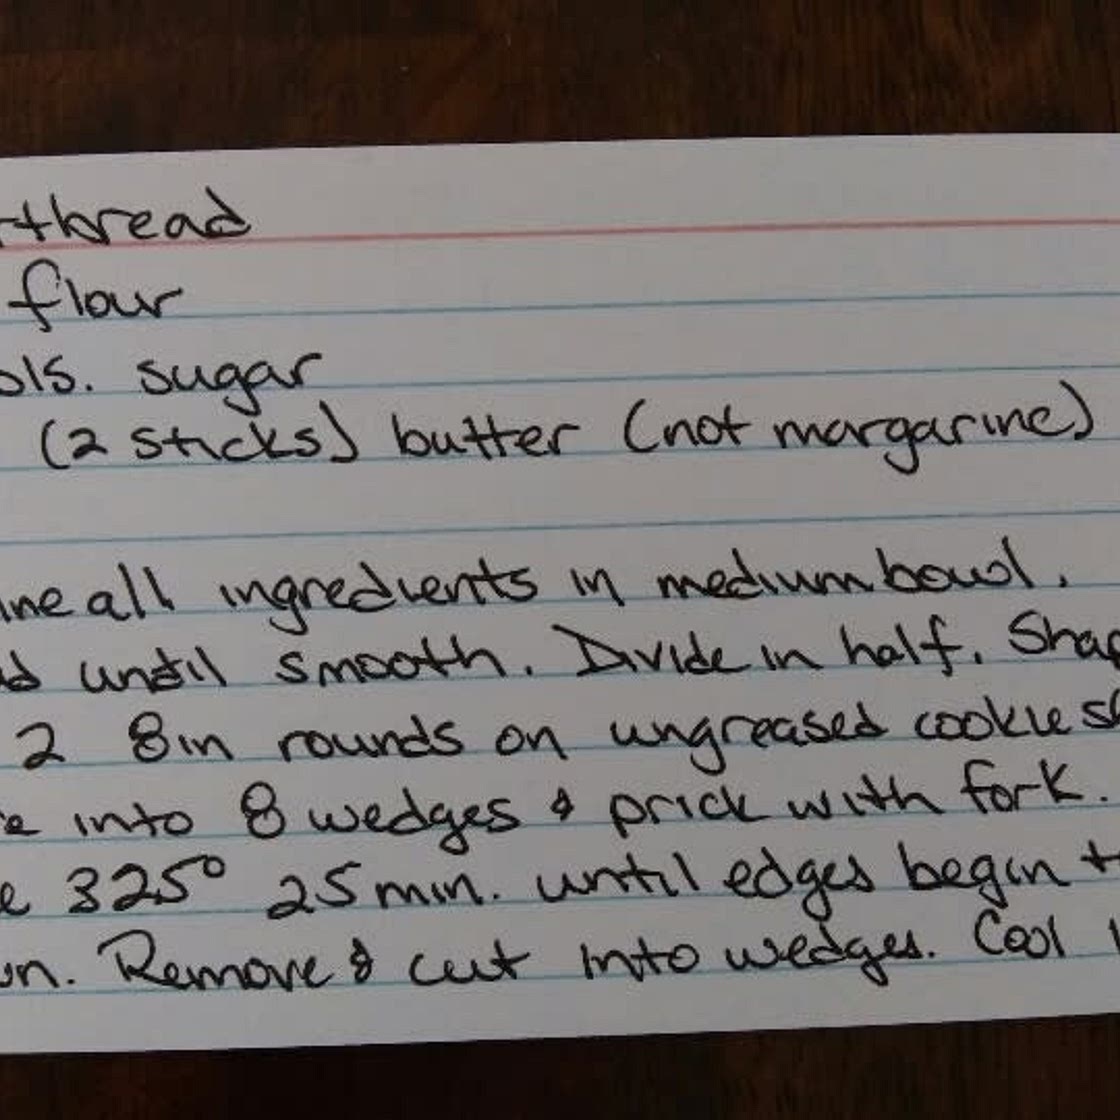 rthread
flour
bls. sugar
(2 sticks) butter (not margarine)
ine all ingredients in medium bowl.
d until smooth. Divide in half. Shap
2 8in rounds on ungreased cookie sh
e into 8 wedges & prick with fork.
e 325° 25 min. until edges begin t
wn. Remove & cut into wedges. Cool